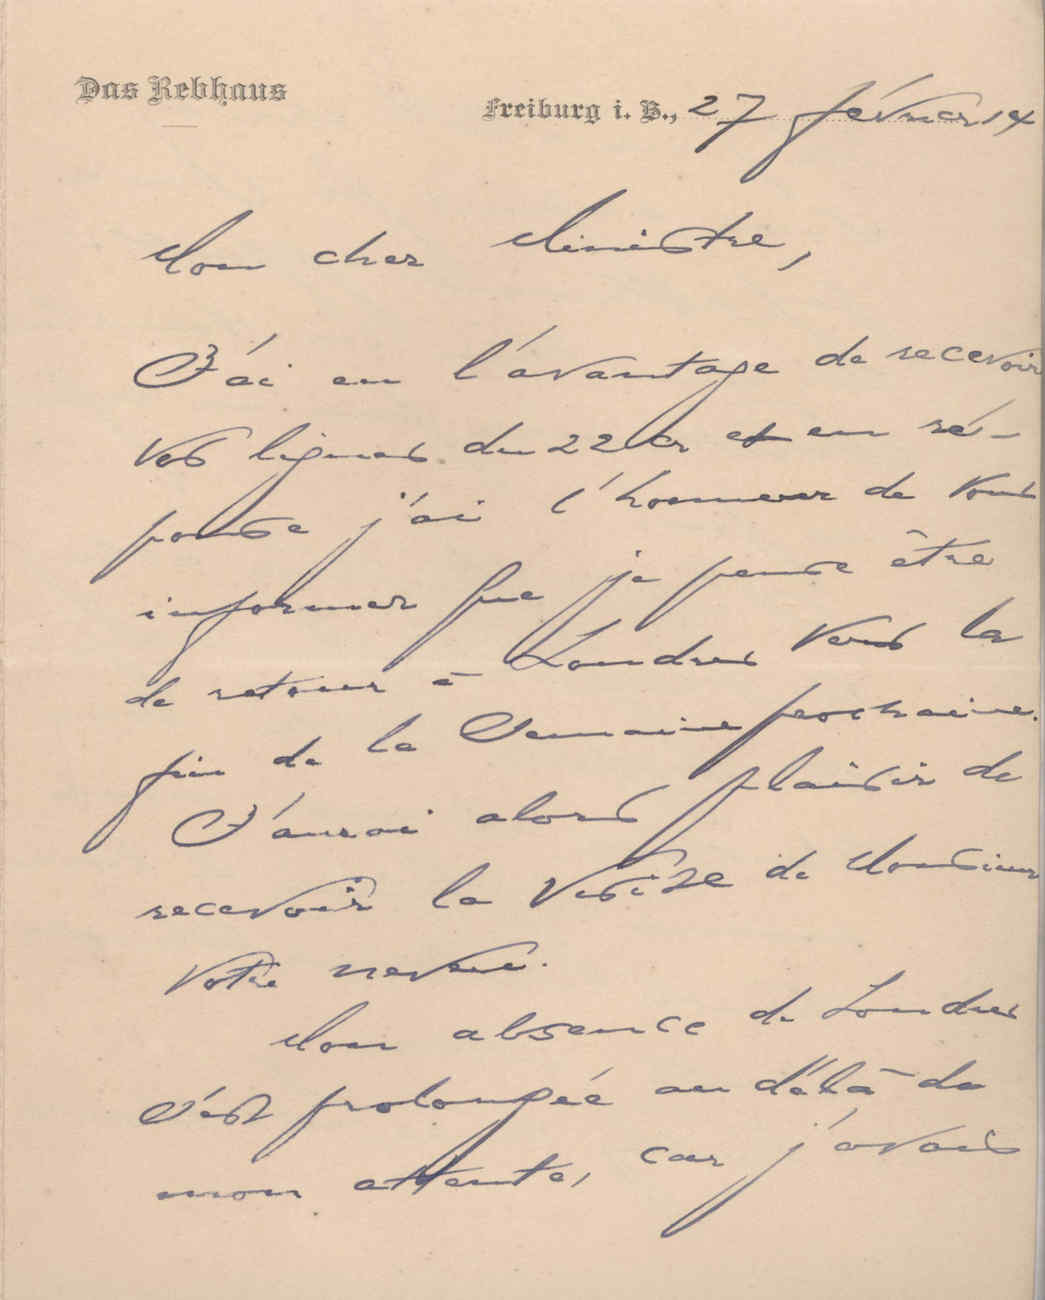 Das Rebhaus
Freiburg i. B., 27 février 14
Mon cher Ministre,
J'ai eu l'avantage de recevoir
vos lignes du 22 cr et en ré-
ponse j'ai l'honneur de vous
informer que je pense être
de retour à Londres vers la
fin de la Semaine prochaine.
J'aurai alors plaisir de
recevoir la visite de Monsieur
votre neveu.
Mon absence de Londres
s'est prolongée au délà de
mon attente, car j'avais